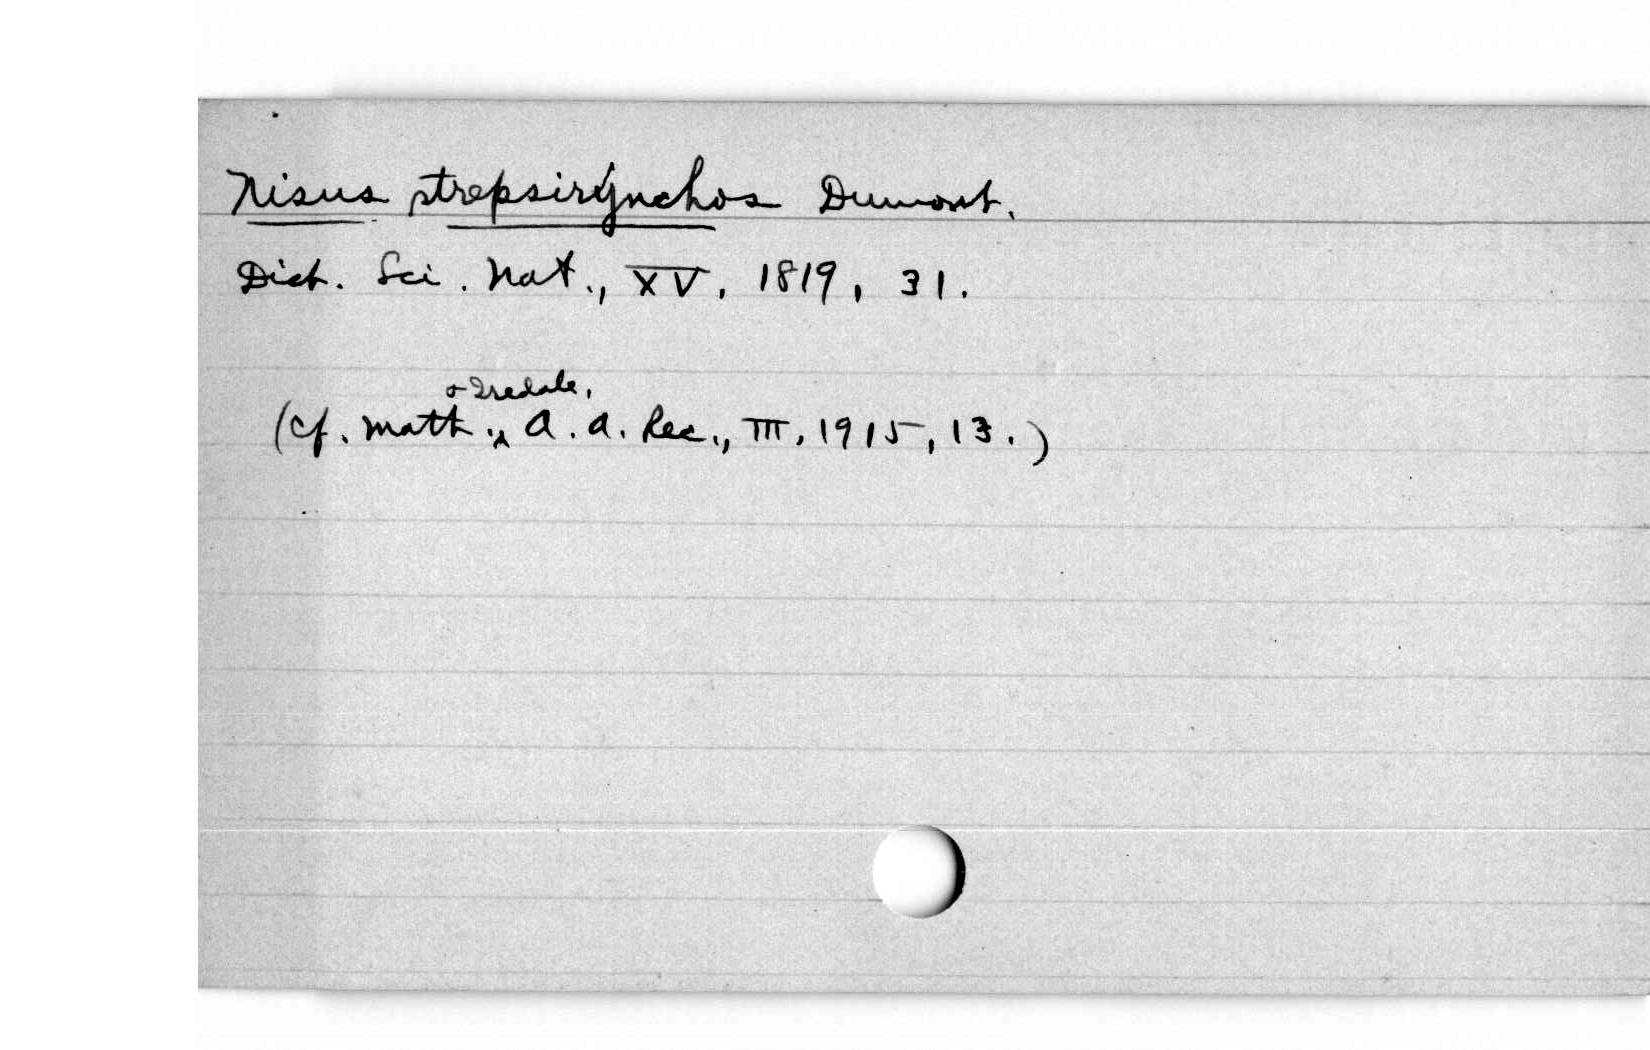 Nisus strepsirynchos Dumont.
Dict. Sci. Nat., XV, 1819, 31.
& Iredale,
(cf. Math., A. A. Rec., III, 1915, 13.)